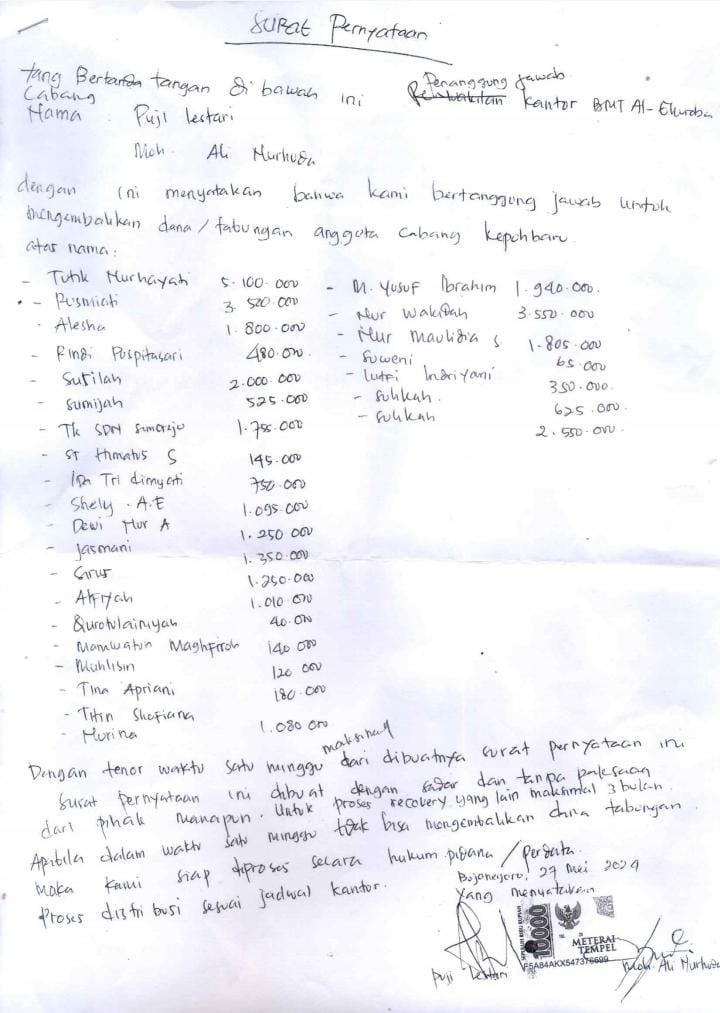 Surat Pernyataan
Yang Bertanda tangan di bawah ini Penanggung jawab
Cabang kantor BMT Al-Ekuroba
Nama : Puji Lestari
Moh. Ali Nurhuda
dengan ini menyatakan bahwa kami bertanggung jawab untuk
mengembalikan dana/tabungan anggota Cabang Kepohbaru
atas nama :
- Tutik Nurhayati 5.100.000
- Pusmiati 3.520.000
- Alesha 1.800.000
- Rindi Puspitasari 480.000
- Sutilah 2.000.000
- Sumijah 525.000
- TK SDN Sumorejo 1.755.000
- ST Htmatus S 145.000
- Ida Tri dimyati 750.000
- Shely . A.E 1.095.000
- Dewi Nur A 1.250.000
- Jasmani 1.350.000
- 1.250.000
- Alfiyah 1.010.000
- Qurotulainiyah 40.000
- Mamwatun Maghfiroh 140.000
- Muhlisin 120.000
- Tina Apriani 180.000
- Titin Shofiana
- Nurina 1.080.000
- M. Yusuf Ibrahim 1.940.000.
- Nur Wakidah 3.550.000
- Nur Maulidia S 1.805.000
- Suweni 65.000
- Lutfi Indriyani 350.000.
- Sulikah. 625.000.
- Sulikah 2.550.000.
Dengan tenor waktu satu minggu maksimal dari dibuatnya surat pernyataan ini
Surat Pernyataan ini dibuat dengan sadar dan tanpa paksaan
dari pihak manapun. Untuk proses recovery yang lain maksimal 3 bulan.
Apabila dalam waktu satu minggu tidak bisa mengembalikan dana tabungan
Maka kami siap diproses secara hukum pidana/perdata.
Proses distribusi sesuai jadwal kantor.
Bojonegoro, 27 Mei 2024
Yang menyatakan
10000
METERAI
TEMPEL
F5A84AKX547376699
Puji Lestari
Moh. Ali Nurhuda